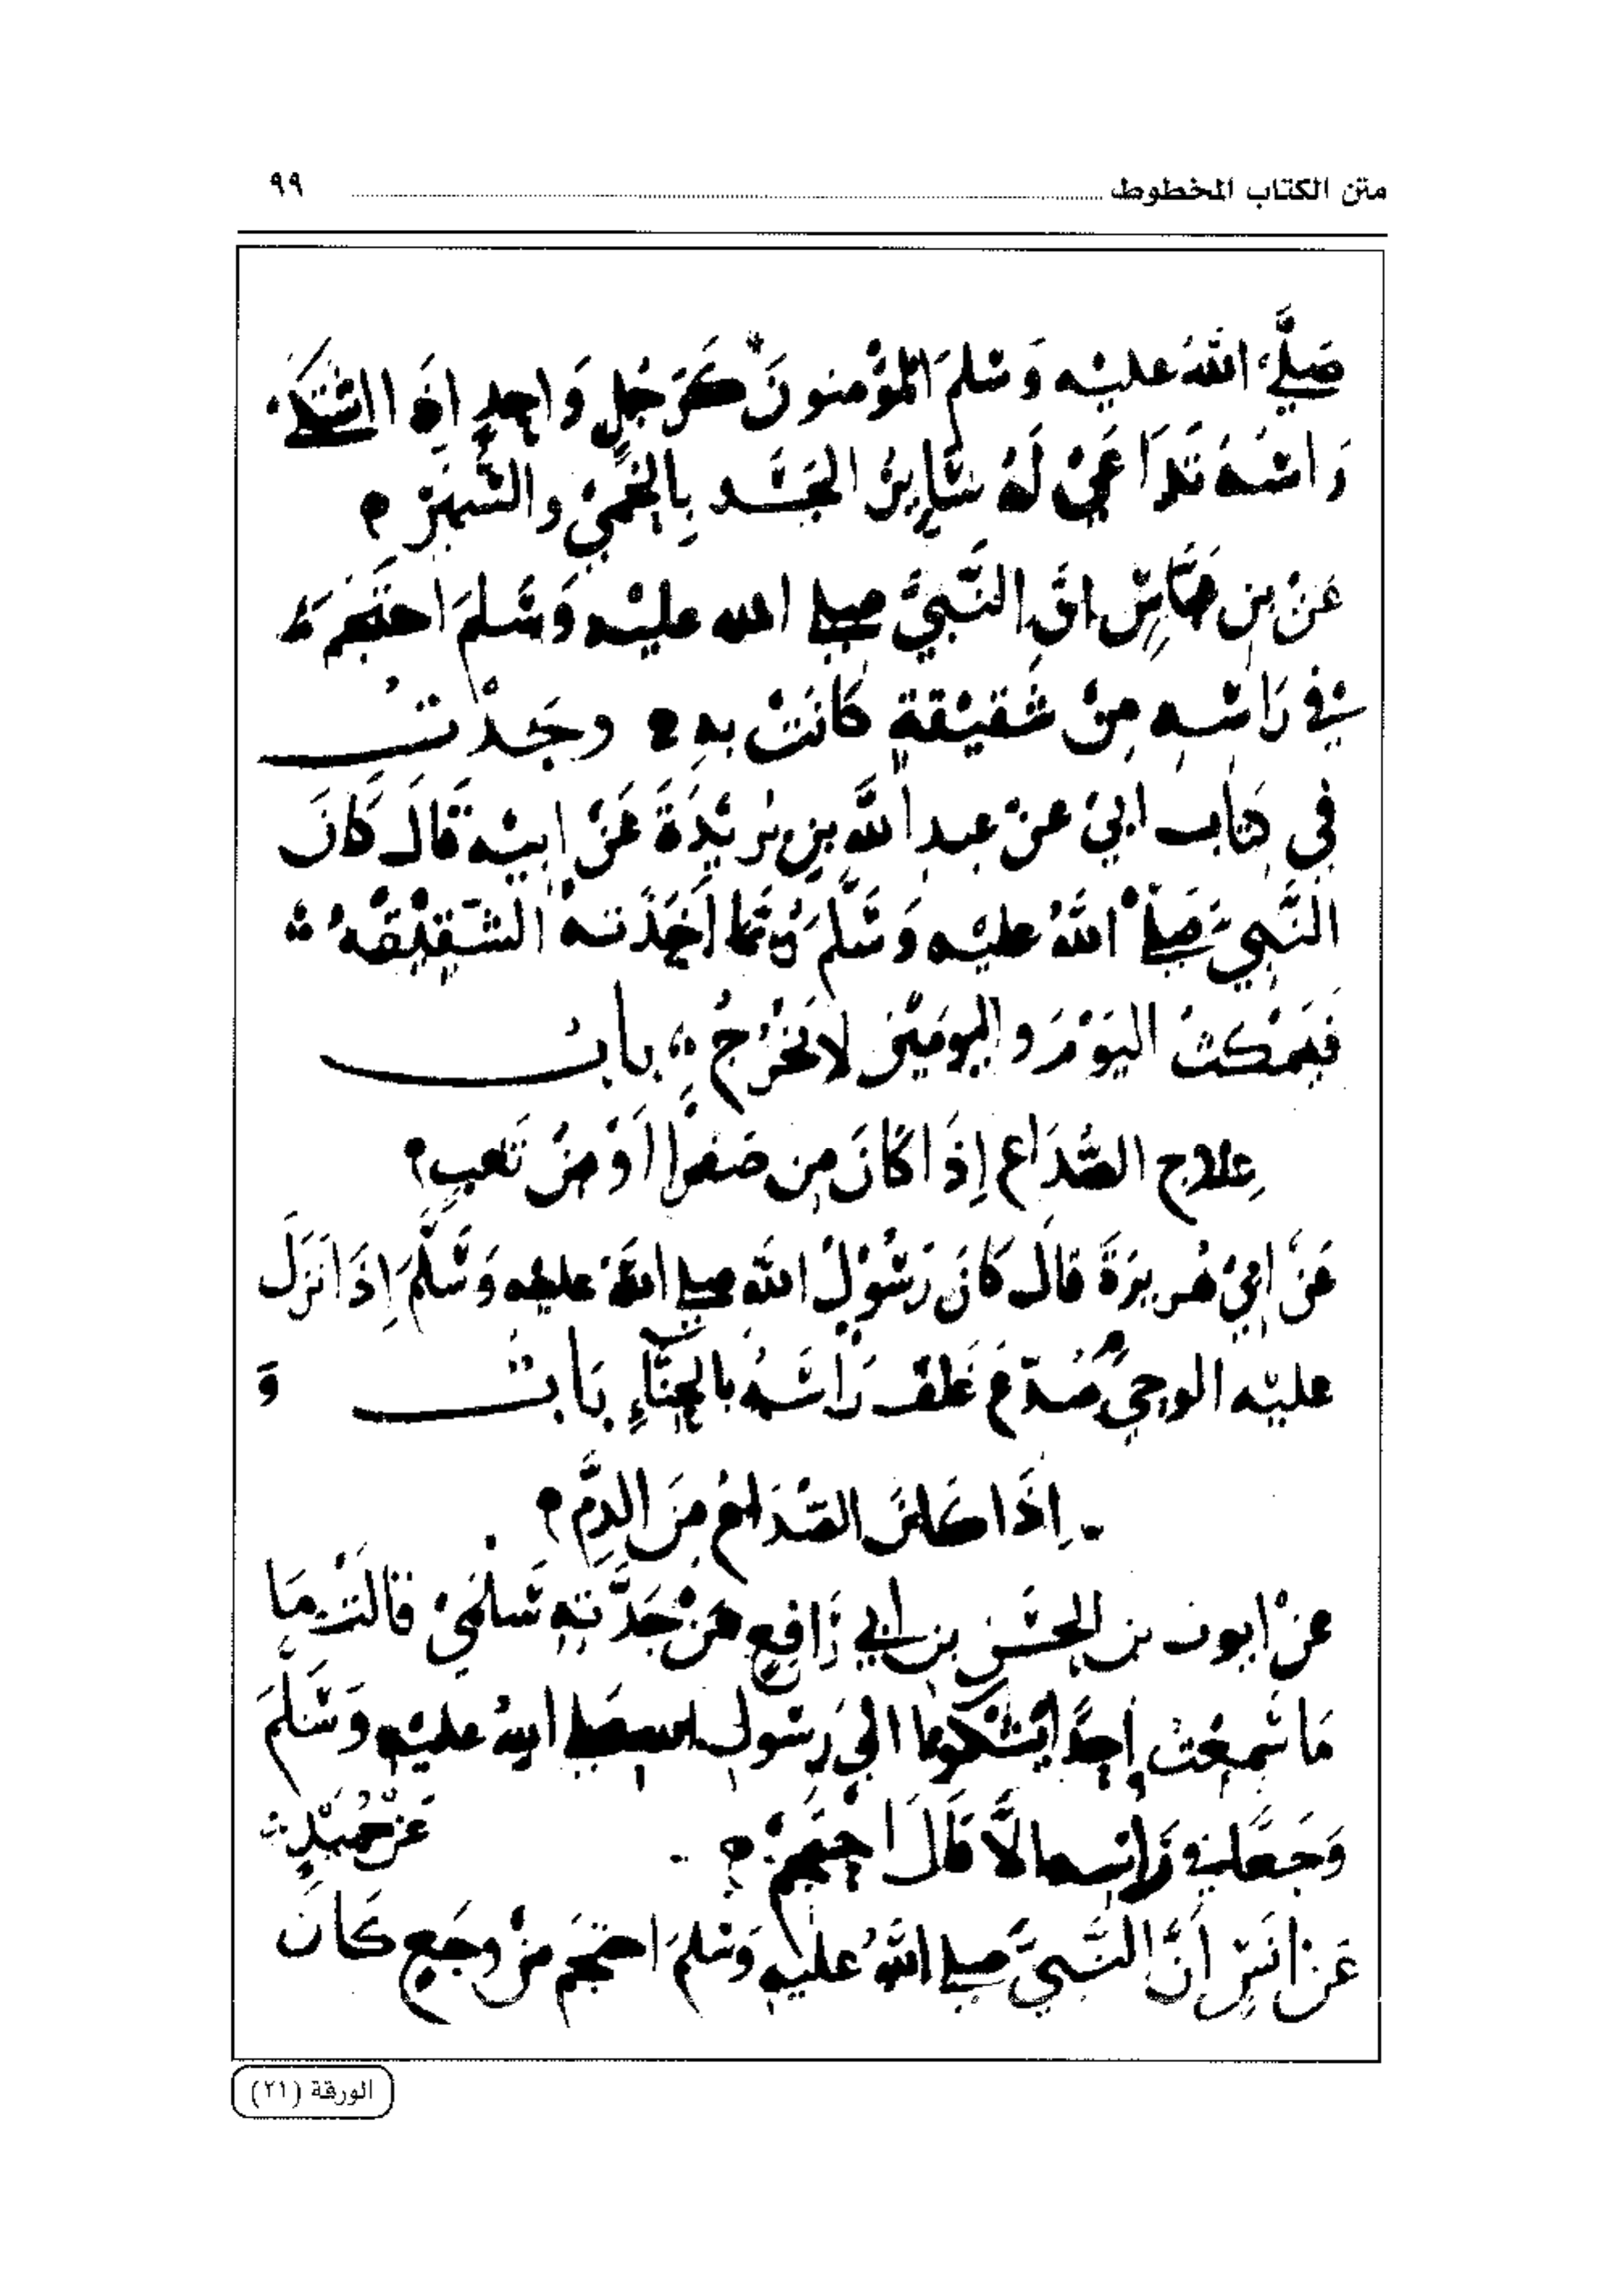 متن الكتاب المخطوط ........ ٩٩
صَلَّى اللهُ عليْه وَسَلمَ المُؤْمنونَ كَرَجُلٍ وَاحدٍ اذَا اشتَكَى
رَاسُهُ تَدَاعَىْ لَهُ سَايِرُ الجَسَد بِالحُمَّىْ والسَّهَرِ م
عَنْ بن عَبَّاسٍ انَّ النَّبيَّ صلى الله عليْه وَسَلمَ احتَجَمَ
في رَاسْهِ مِنْ شَقيْقةٍ كَانَتْ بهِ وجَدْتُ
في كِتَاب ابيْ عنْ عبد اللَّهِ بنِ بُرَيْدَةَ عَنْ ابيْه قَالَ كَانَ
النَّبي صَلى اللَّهُ عليْه وَسَلَّمَ رُبَّمَا أَخَذَته الشَقِيْقَهُ
فَيَمْكثُ اليَوْمَ واليومَيْنِ لا يَخْرُجُ بابُ
عِلاجِ الصُّدَاعِ إِذَا كَانَ مِن صَفرا أَوْ مِنْ تَعبٍ م
عَنْ ابيْ هُريرَةَ قالَ كَانَ رَسُوْلُ اللَّه صلى اللَّهُ عليْه وَسَلَّمَ إِذَا نَزَلَ
عليْه الوحيُ صُدّعَ فَغَلفَ رَأسَهُ بالحِنَّاءِ بَابُ وَ
إِذَا كانَ الصُّدَاعُ مِنَ الدَّمِ م
عنْ ايوبَ بن الحسَنِ بن ابي رَافِعٍ عَنْ جَدَّتِهِ سَلْمَىْ قالَتْ مَا
مَا سَمِعْتُ احدًا يَشْكوا الىَ رَسُول الله صَلى اللهُ عليْهِ وَسَلَّمَ
وَجَعًا في رَاسه الَّا قَالَ احْتَجِمْ عَنْ حُمَيْدٍ
عَن انَسٍ أَنَّ النَّبيَّ صلى اللَّهُ عليْهِ وَسَلمَ احتجَم منْ وجَعٍ كَانَ
الورقة (٢١)